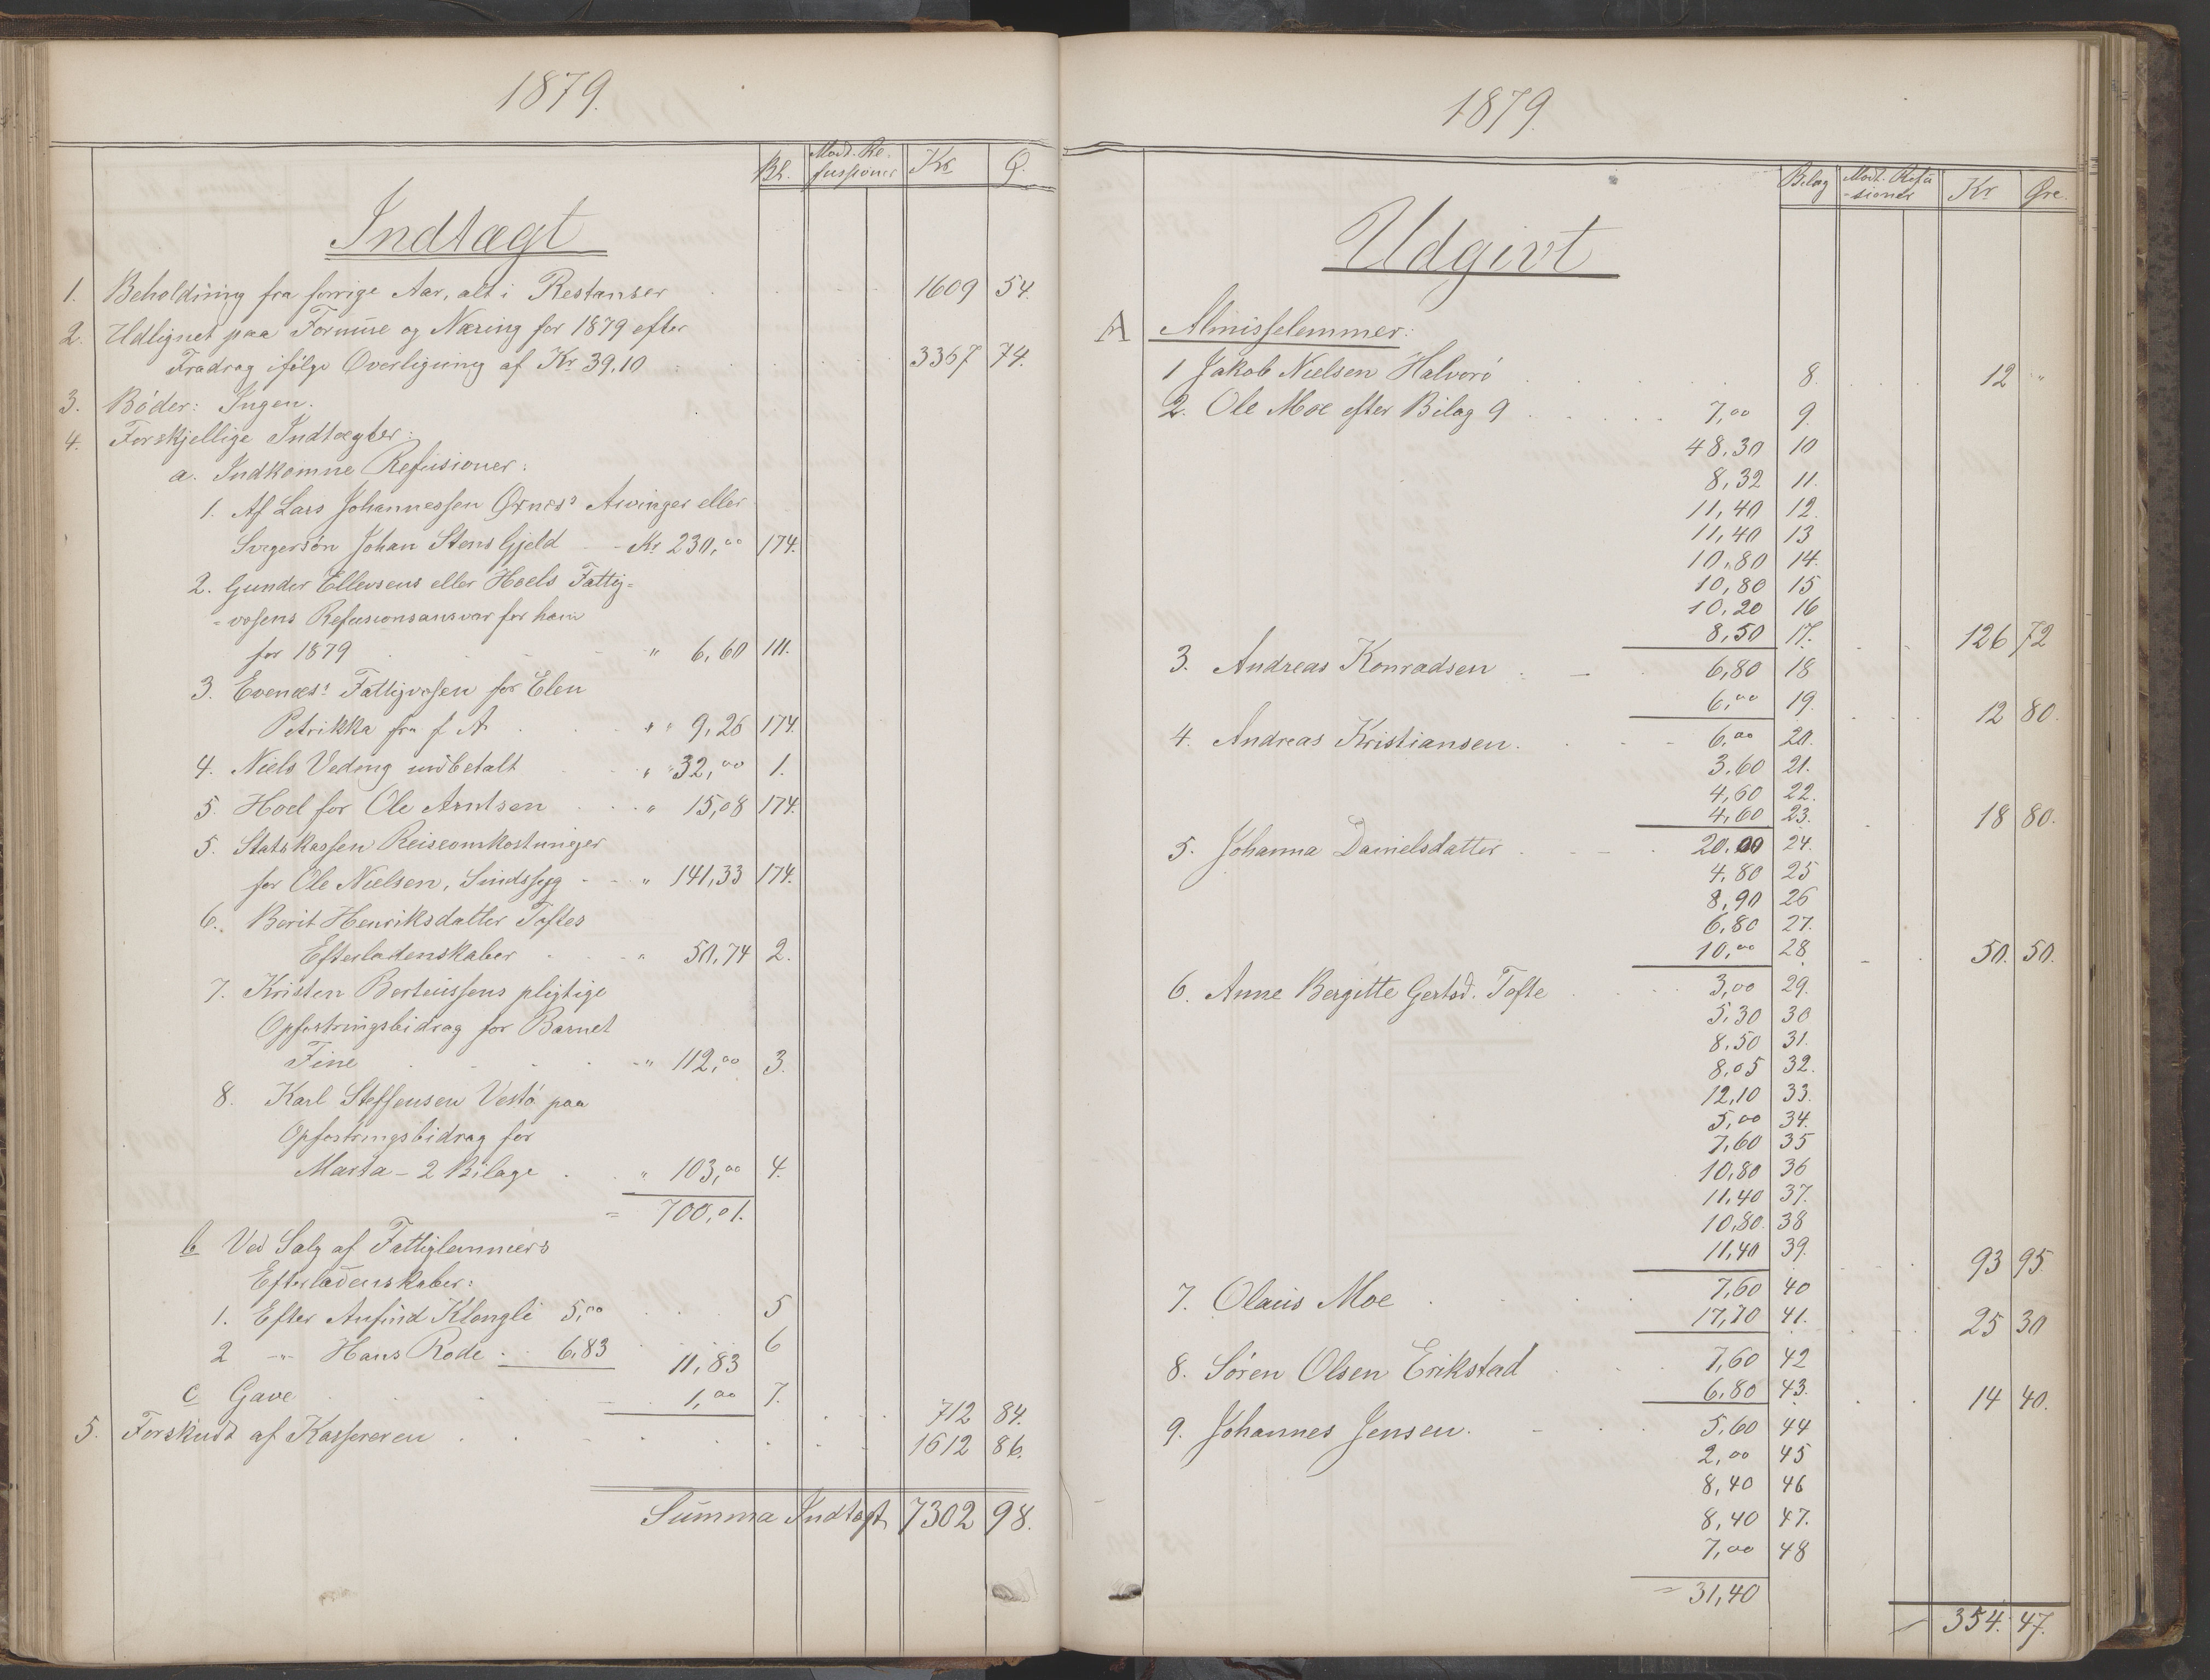 1879.
Bl. Modt. Re- Kr Ø.
fussioner
Indtægt
1. Beholdning fra forrige Aar, alt i Restanser 1609 54.
2. Udlignet paa Formue og Næring for 1879 efter
Fradrag ifølge Overligning af Kr 39,10 3367 74.
3. Bøder: Ingen.
4. Forskjellige Indtægter:
a. Indkomne Refusioner:
1. Af Lars Johannessen Arvinger eller
Svigersøn Johan Stens Gjeld Kr 230,00 174.
2. Gunder Ellevsens eller Hoels Fattig-
-væsens Refusionsansvar for ham
for 1879 " 6,60 111.
3. Evenæs' Fattigvæsen for Elen
Petrikka fra f A " 9,26 174.
4. Niels Veding indbetalt " 32,00 1.
5. Hoel for Ole Arntsen " 15,08 174.
5. Statskassen Reiseomkostninger
for Ole Nielsen, Sindssyg " 141,33 174.
6. Berit Henriksdatter Toftes
Efterladenskaber " 50,74 2.
7. Kristen Berteussens pligtige
Opfostringsbidrag for Barnet
Fine " 112,00 3.
8. Karl Steffensen Vestø paa
Opfostringsbidrag for
Marta - 2 Bilage " 103,00 4.
= 700,01.
b Ved Salg af Fattiglemmers
Efterladenskaber:
1. Efter Anfind Klongli 5,00 5
2 -"- Hans Rode 6,83 11,83 6
c Gave 1,00 7. 712 84.
5. Forskud af Kassereren 1612 86.
Summa Indtægt 7302 98.
1879.
Bilag Modt. Refu Kr Øre.
-sioner
Udgivt
A Almisselemmer:
1 Jakob Nielsen Halvorø 8. 12 "
2. Ole Moe efter Bilag 9 7,00 9.
48,30 10
8,32 11.
11,40 12.
11,40 13
10,80 14.
10,80 15
10,20 16
8,50 17. 126 72
3. Andreas Konradsen 6,80 18
6,00 19. 12 80.
4. Andreas Kristiansen. 6,00 20.
3,60 21.
4,60 22.
4,60 23. 18 80.
5. Johanna Danielsdatter 20,00 24.
4,80 25
8,90 26
6,80 27.
10,00 28. 50. 50.
6. Anne Bergitte Gertsd. Tofte 3,00 29.
5,30 30
8,50 31.
8,05 32.
12,10 33.
5,00 34.
7,60 35
10,80 36
11,40 37.
10,80 38
11,40 39. 93 95
7. Olaus Moe 7,60 40
17,70 41. 25 30
8. Søren Olsen Erikstad 7,60 42
6,80 43. 14 40.
9. Johannes Jensen. 5,60 44
2,00 45
8,40 46
8,40 47.
7,00 48
= 31,40
354. 47.